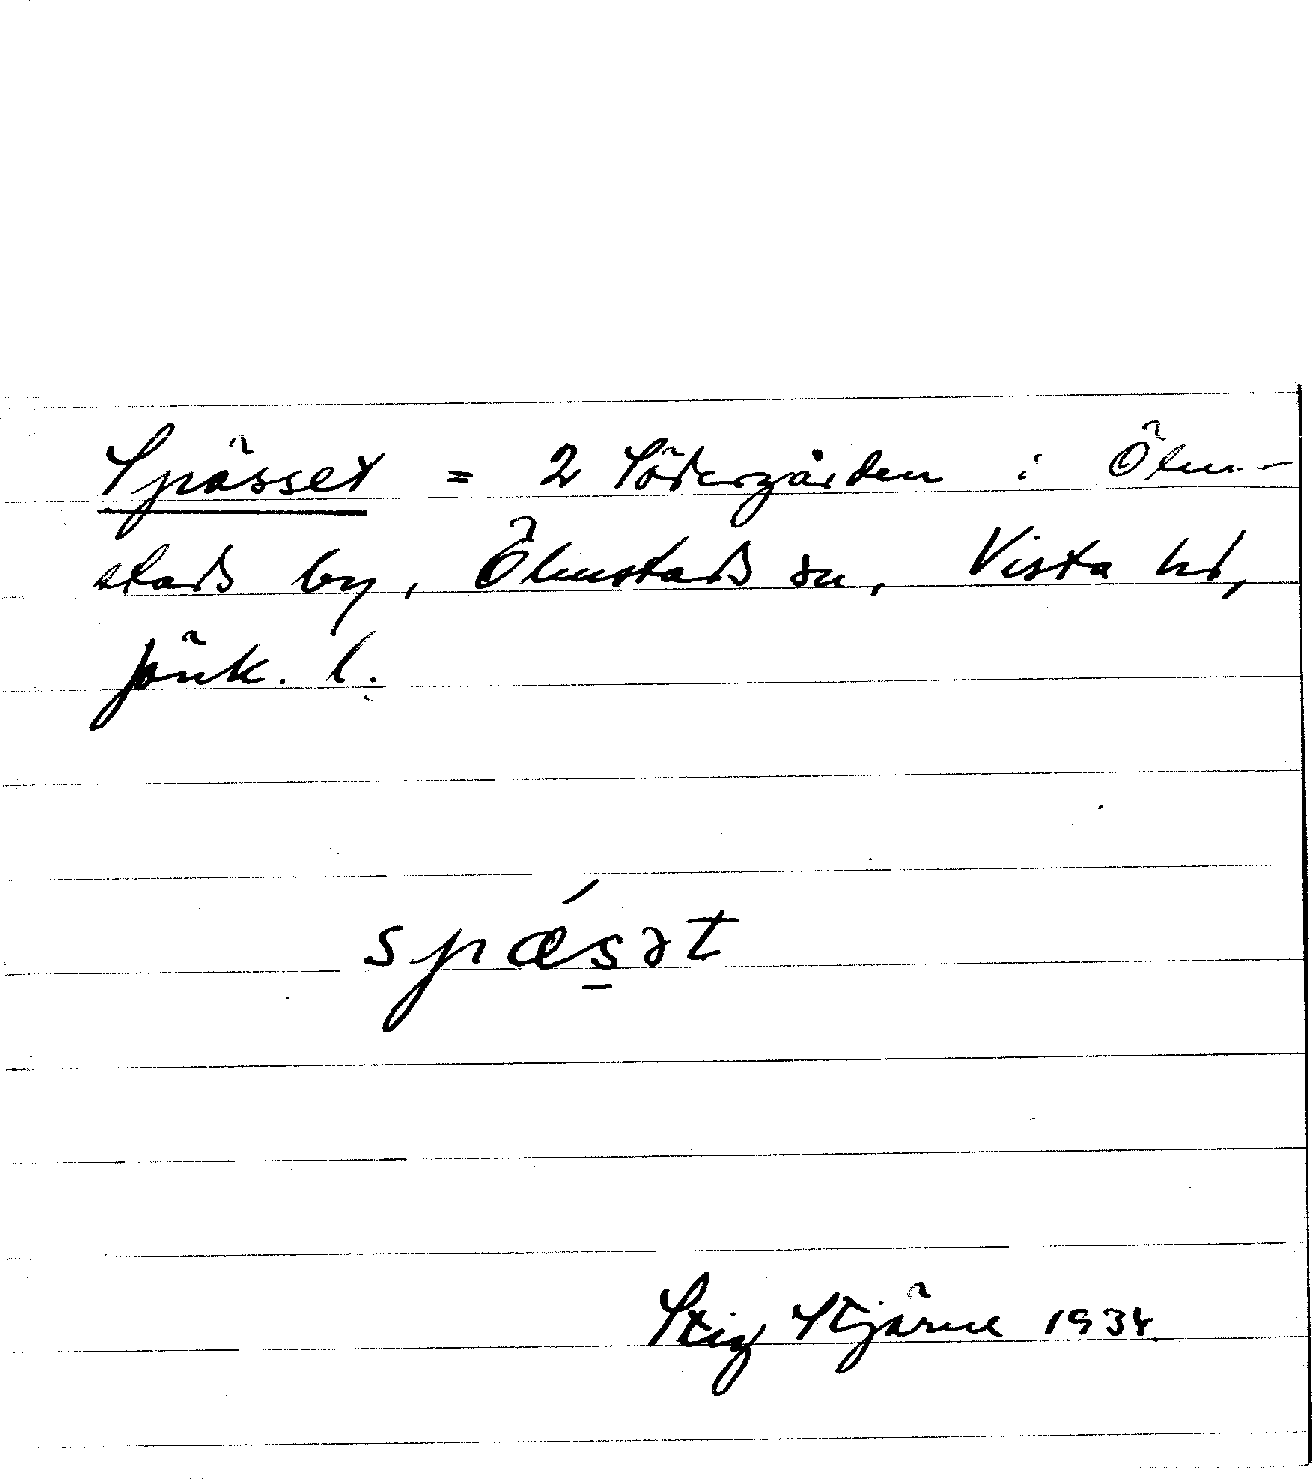 Spässet = 2 Södergården i Ölm-
stads by, Ölmstads sn, Vista hd,
Jönk. l.
spǽs̠ət
Stig Stjärne 1934